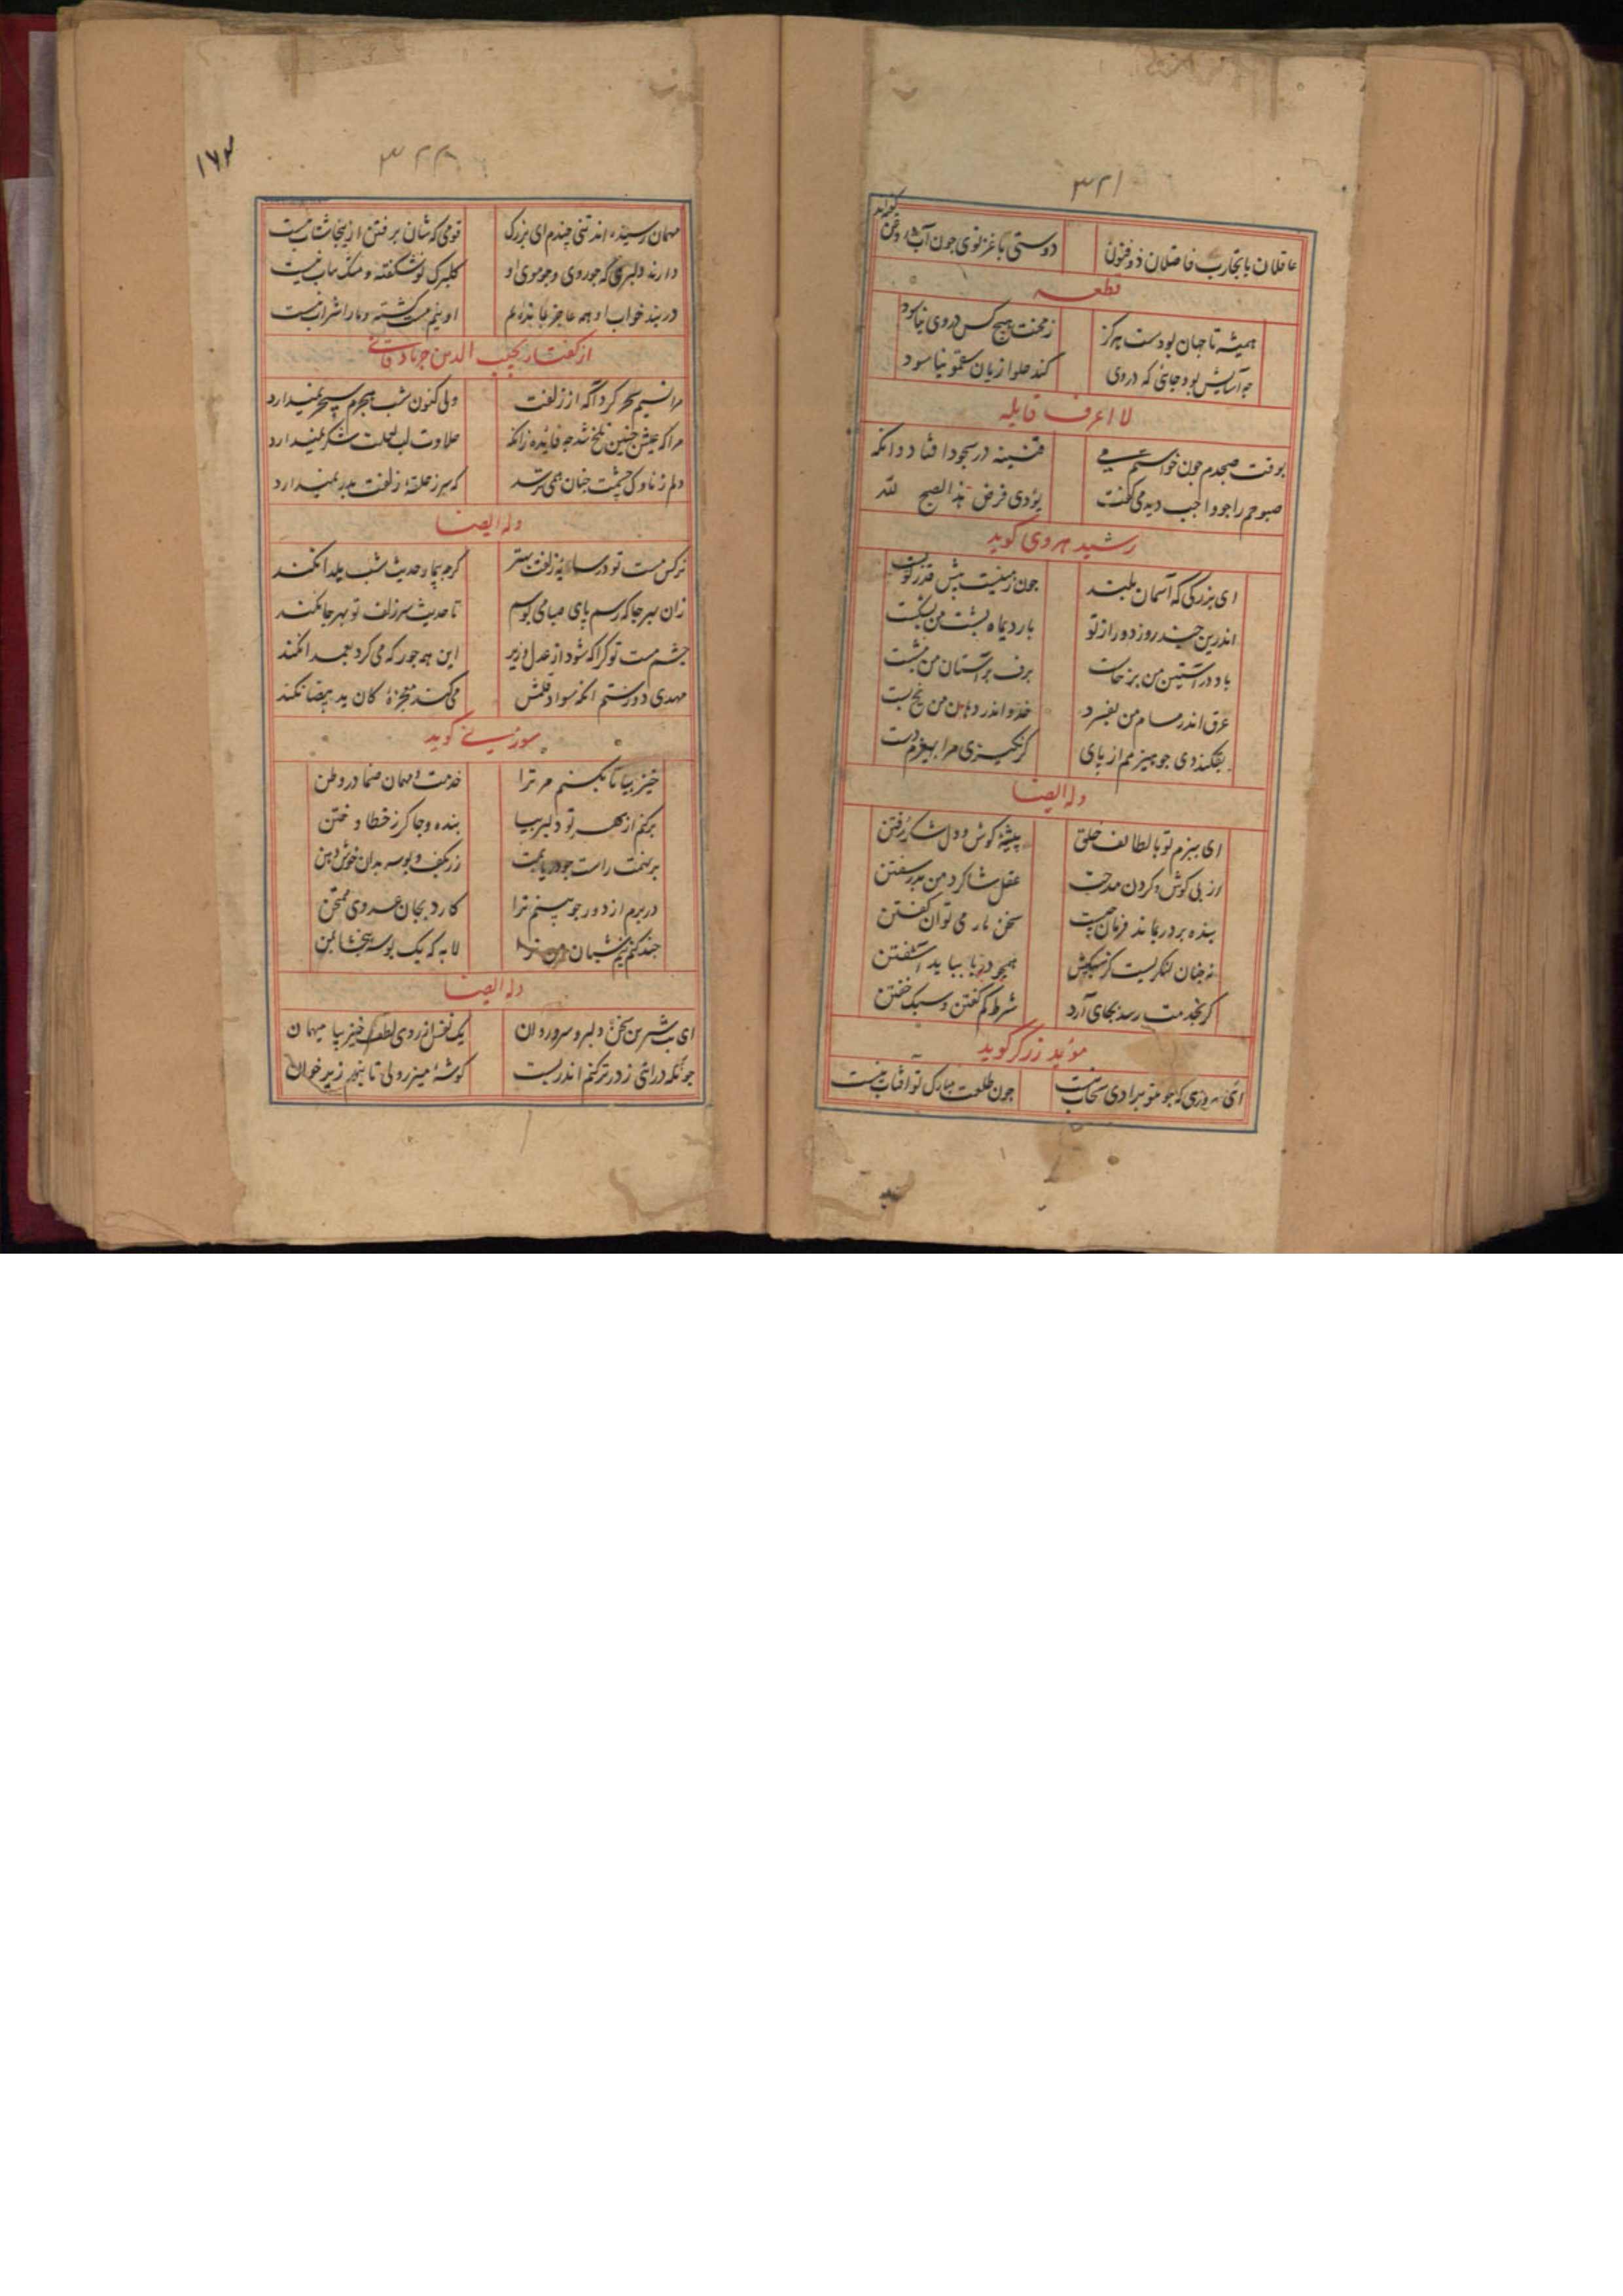 ۳۲۱
عاقلان با تجارب فاضلان ذو فنون دوستی با غزنوی چون آب و روغن گفته‌اند
قطعه
همیشه تا جهان بودست هرگز ز محنت هیچ کس در وی نیاسود
چه آسایش بود جائی که در وی کند حلوا زیان سقمونیا سود
لا اعرف قایله
بوقت صبحدم چون خواستم می قنینه در سجود افتاد وانکه
صبوحم را چو واجب دید می گفت یؤدی فرض هذا الصبح لله
رشید هروی گوید
ای بزرگی که آسمان بلند چون زمینست پیش قدر تو پست
اندرین چند روز دور از تو بار دیماه پشت من بشکست
باد در آستین من برخاست برف بر آستان من بنشست
عرق اندر مسام من بفسرد خدو اندر دهان من یخ بست
بفکند دی چو هیزمم از پای گر نگیری مرا بهیزم دست
وله ایضا
ای ببزم تو با لطائف خلق پیشهٔ گوش و دل شکر رفتن
از پی گوش و گردن مدحت عقل شاگرد من بدر سفتن
بنده بر در بماند فرمان چیست سخن بار می توان گفتن
نه چنان لنکریست کز سبکیش همچو دریا بباید آشفتن
گر بخدمت رسد بجای آرد شرط کم گفتن و سبک خفتن
مؤید زرگر گوید
ای سروری که چو تو برادی سحاب نیست چون طلعت مبارک تو آفتاب نیست
۳۲۲
۱۷۲
مهمان رسیده‌اند تنی چندم ای بزرگ قومی که شان برفتن از اینجا شتاب نیست
دارند دلبری که چو روی و چو موی او گلبرگ نوشگفته و مشک ناب نیست
دربند خواب او همه عاجز بمانده‌ایم او نیم مست گشته و ما را شراب نیست
از گفتار نجیب الدین جربادقانی
مرا نسیم سحر کرد آگه از زلفت ولی کنون شب هجرم سحر نمیدارد
مرا که عیش چنین تلخ شد چه فایده زانکه حلاوت لب لعلت شکر نمیدارد
دلم ز ناوک چشمت چنان همی ترسد که سر ز حلقهٔ زلفت بدر نمیدارد
وله ایضا
نرگس مست تو در سایهٔ زلفت بستر گرچه بیمار حدیث شب یلدا نکند
زان بهر جا که رسم پای صبا می بوسم تا حدیث سر زلف تو بهر جا نکند
چشم مست تو کراکه شود از عدل وزیر این همه جور که می کرد بعمدا نکند
مهدی دور ستم آنکه سواد قلمش می کند معجزهٔ کان ید بیضا نکند
سوزنی گوید
خیز بیا تا بکنم مر ترا خدمت مهمان صنما در وطن
برکنم از بهر تو دلبر بیا بنده و چاکر ز خطا و ختن
برنهمت راست چو دریابمت زر بکف و بوسه بدان خوش دهن
دربرم از دور چو بینم ترا کارد بجان عدوی ممتحن
چند کنم نیم شبان من ترا لابه که یک بوسه ببخشا بمن
وله ایضا
ای بت شیرین سخن دلبر و سرو روان یک نفس از روی لطف خیز بیا میهمان
چونکه درآئی ز در ترکنم اندر تست گوشهٔ میزر ولی تا بنهم زیر خوان